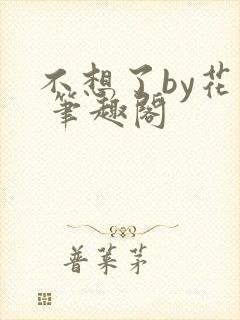 不想了by花
筆趣阁
普菜茅